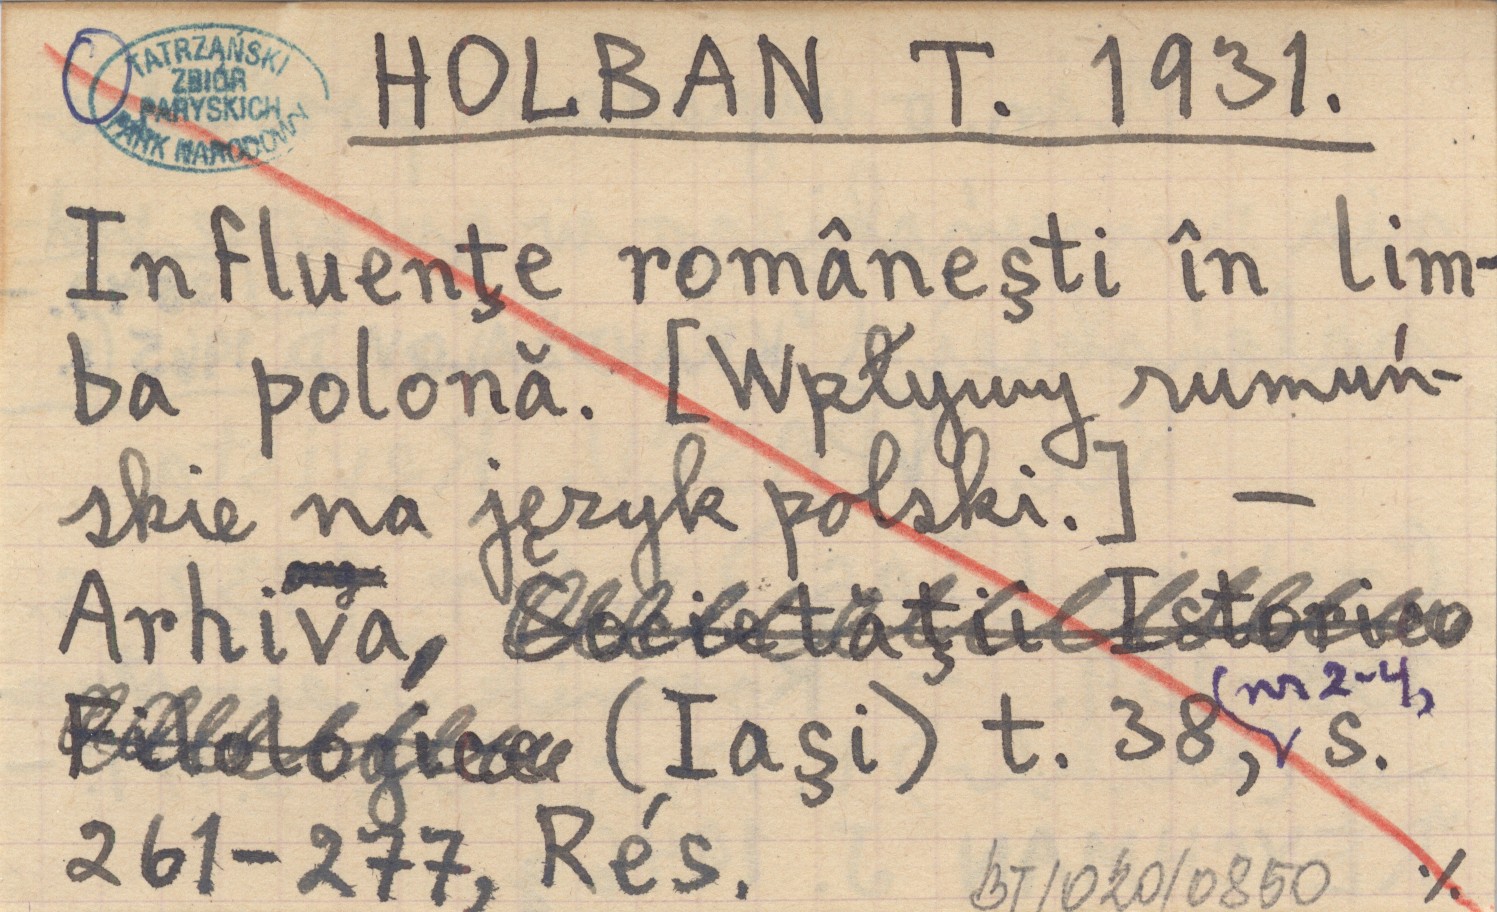 TATRZAŃSKI
ZBIÓR
PARYSKICH
PARK NARODOWY
HOLBAN T. 1931.
Influenţe româneşti în lim-
ba polonă. [Wpływy rumuń-
skie na język polski.] —
Arhiva, Societăţii Istorico
Filologice (Iaşi) t. 38, (nr 2-4, s.
261-277, Rés.
BT/020/0850
./.